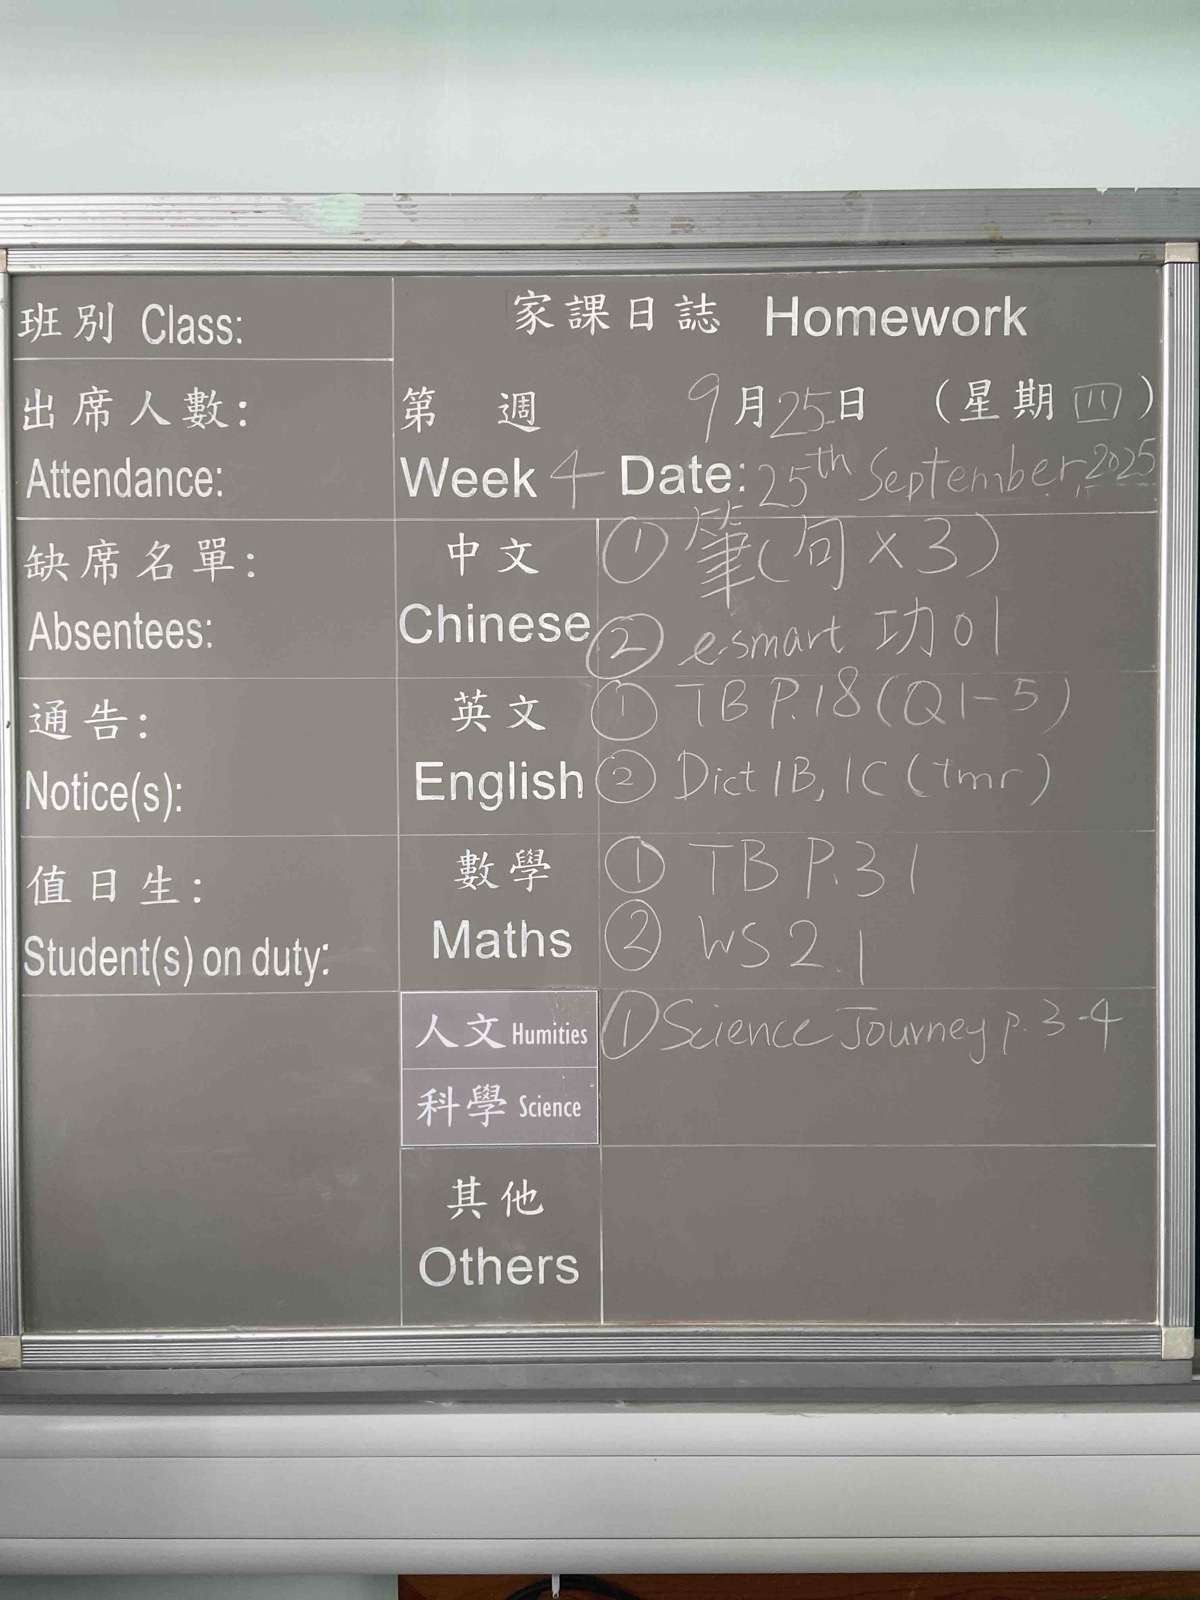 班別 Class:
家課日誌 Homework
出席人數:
Attendance:
第 週 9月25日 (星期四)
Week 4 Date: 25th September, 2025
缺席名單:
Absentees:
中文
Chinese
① 筆(句×3)
② e-smart 功01
通告:
Notice(s):
英文
English
① TB P.18 (Q1-5)
② Dict 1B, 1C (tmr)
值日生:
Student(s) on duty:
數學
Maths
① TB P.31
② WS 2.1
人文 Humities
① Science Journey p.3-4
科學 Science
其他
Others